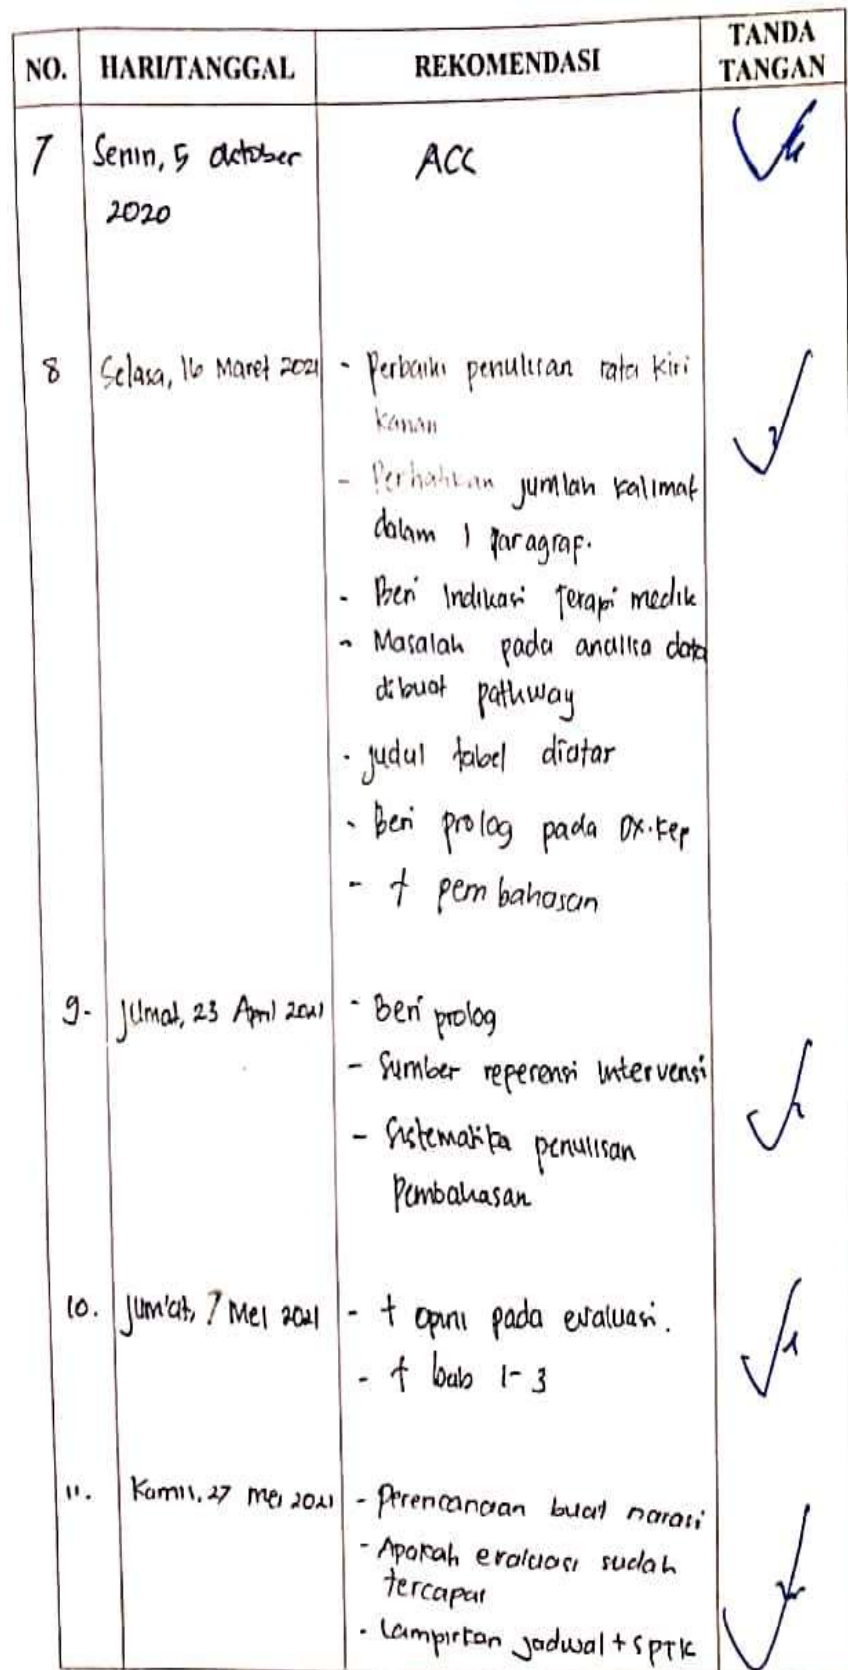 NO. HARI/TANGGAL REKOMENDASI TANDA TANGAN
7 Senin, 5 Oktober ACC
2020
8 Selasa, 16 Maret 2021 - Perbaiki penulisan rata kiri
kanan
- Perhatikan jumlah kalimat
dalam 1 paragraf.
- Beri Indikasi terapi medik
- Masalah pada analisa data
dibuat pathway
- judul tabel diatar
- Beri prolog pada DX.Kep
- + pembahasan
9. Jumat, 23 April 2021 - Beri prolog
- Sumber reperensi intervensi
- Sistematika penulisan
Pembahasan
10. Jum'at, 7 Mei 2021 - + opini pada evaluasi.
- + bab 1-3
11. Kamis, 27 Mei 2021 - Perencanaan buat narasi
- Apakah evaluasi sudah
tercapai
- Lampirkan jadwal + SPTK